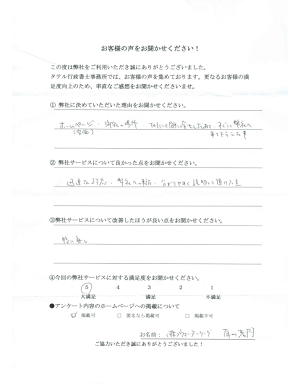 お客様の声をお聞かせください!
この度は弊社をご利用いただき誠にありがとうございました。
タテル行政書士事務所では、お客様の声を集めております。更なるお客様の満
足度向上のため、率直なご感想をお聞かせくださいませ。
① 弊社に決めていただいた理由をお聞かせください。
ホームページ
② 弊社サービスについて良かった点をお聞かせください。
迅速な対応
③弊社サービスについて改善したほうが良い点をお聞かせください。
特に無し
④今回の弊社サービスに対する満足度をお聞かせください。
5 4 3 2 1
大満足 満足 不満足
●アンケート内容のホームページへの掲載について
☑ 掲載可 □ 匿名なら掲載可 □ 掲載不可
お名前:
ご協力いただき誠にありがとうございました!